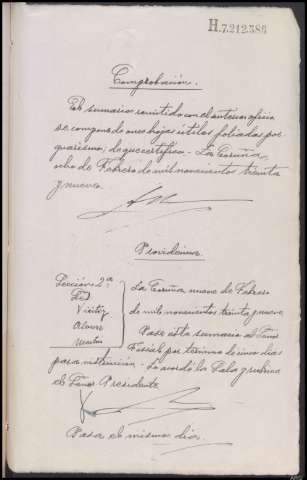 H.7.212.386
Comprobación.
El sumario remitido con el anterior oficio
se compone de once hojas útiles foliadas por
guarismo, de que certifico.- La Coruña
ocho de Febrero de mil novecientos treinta
y nueve.
Providencia
Sección 2ª
La Coruña, nueve de Febrero
de mil novecientos treinta y nueve
Pase este sumario al Señor
Fiscal por termino de cinco dias
para instrucción - Lo acordó la Sala y rubrica
el Señor Presidente
Pasa el mismo dia.